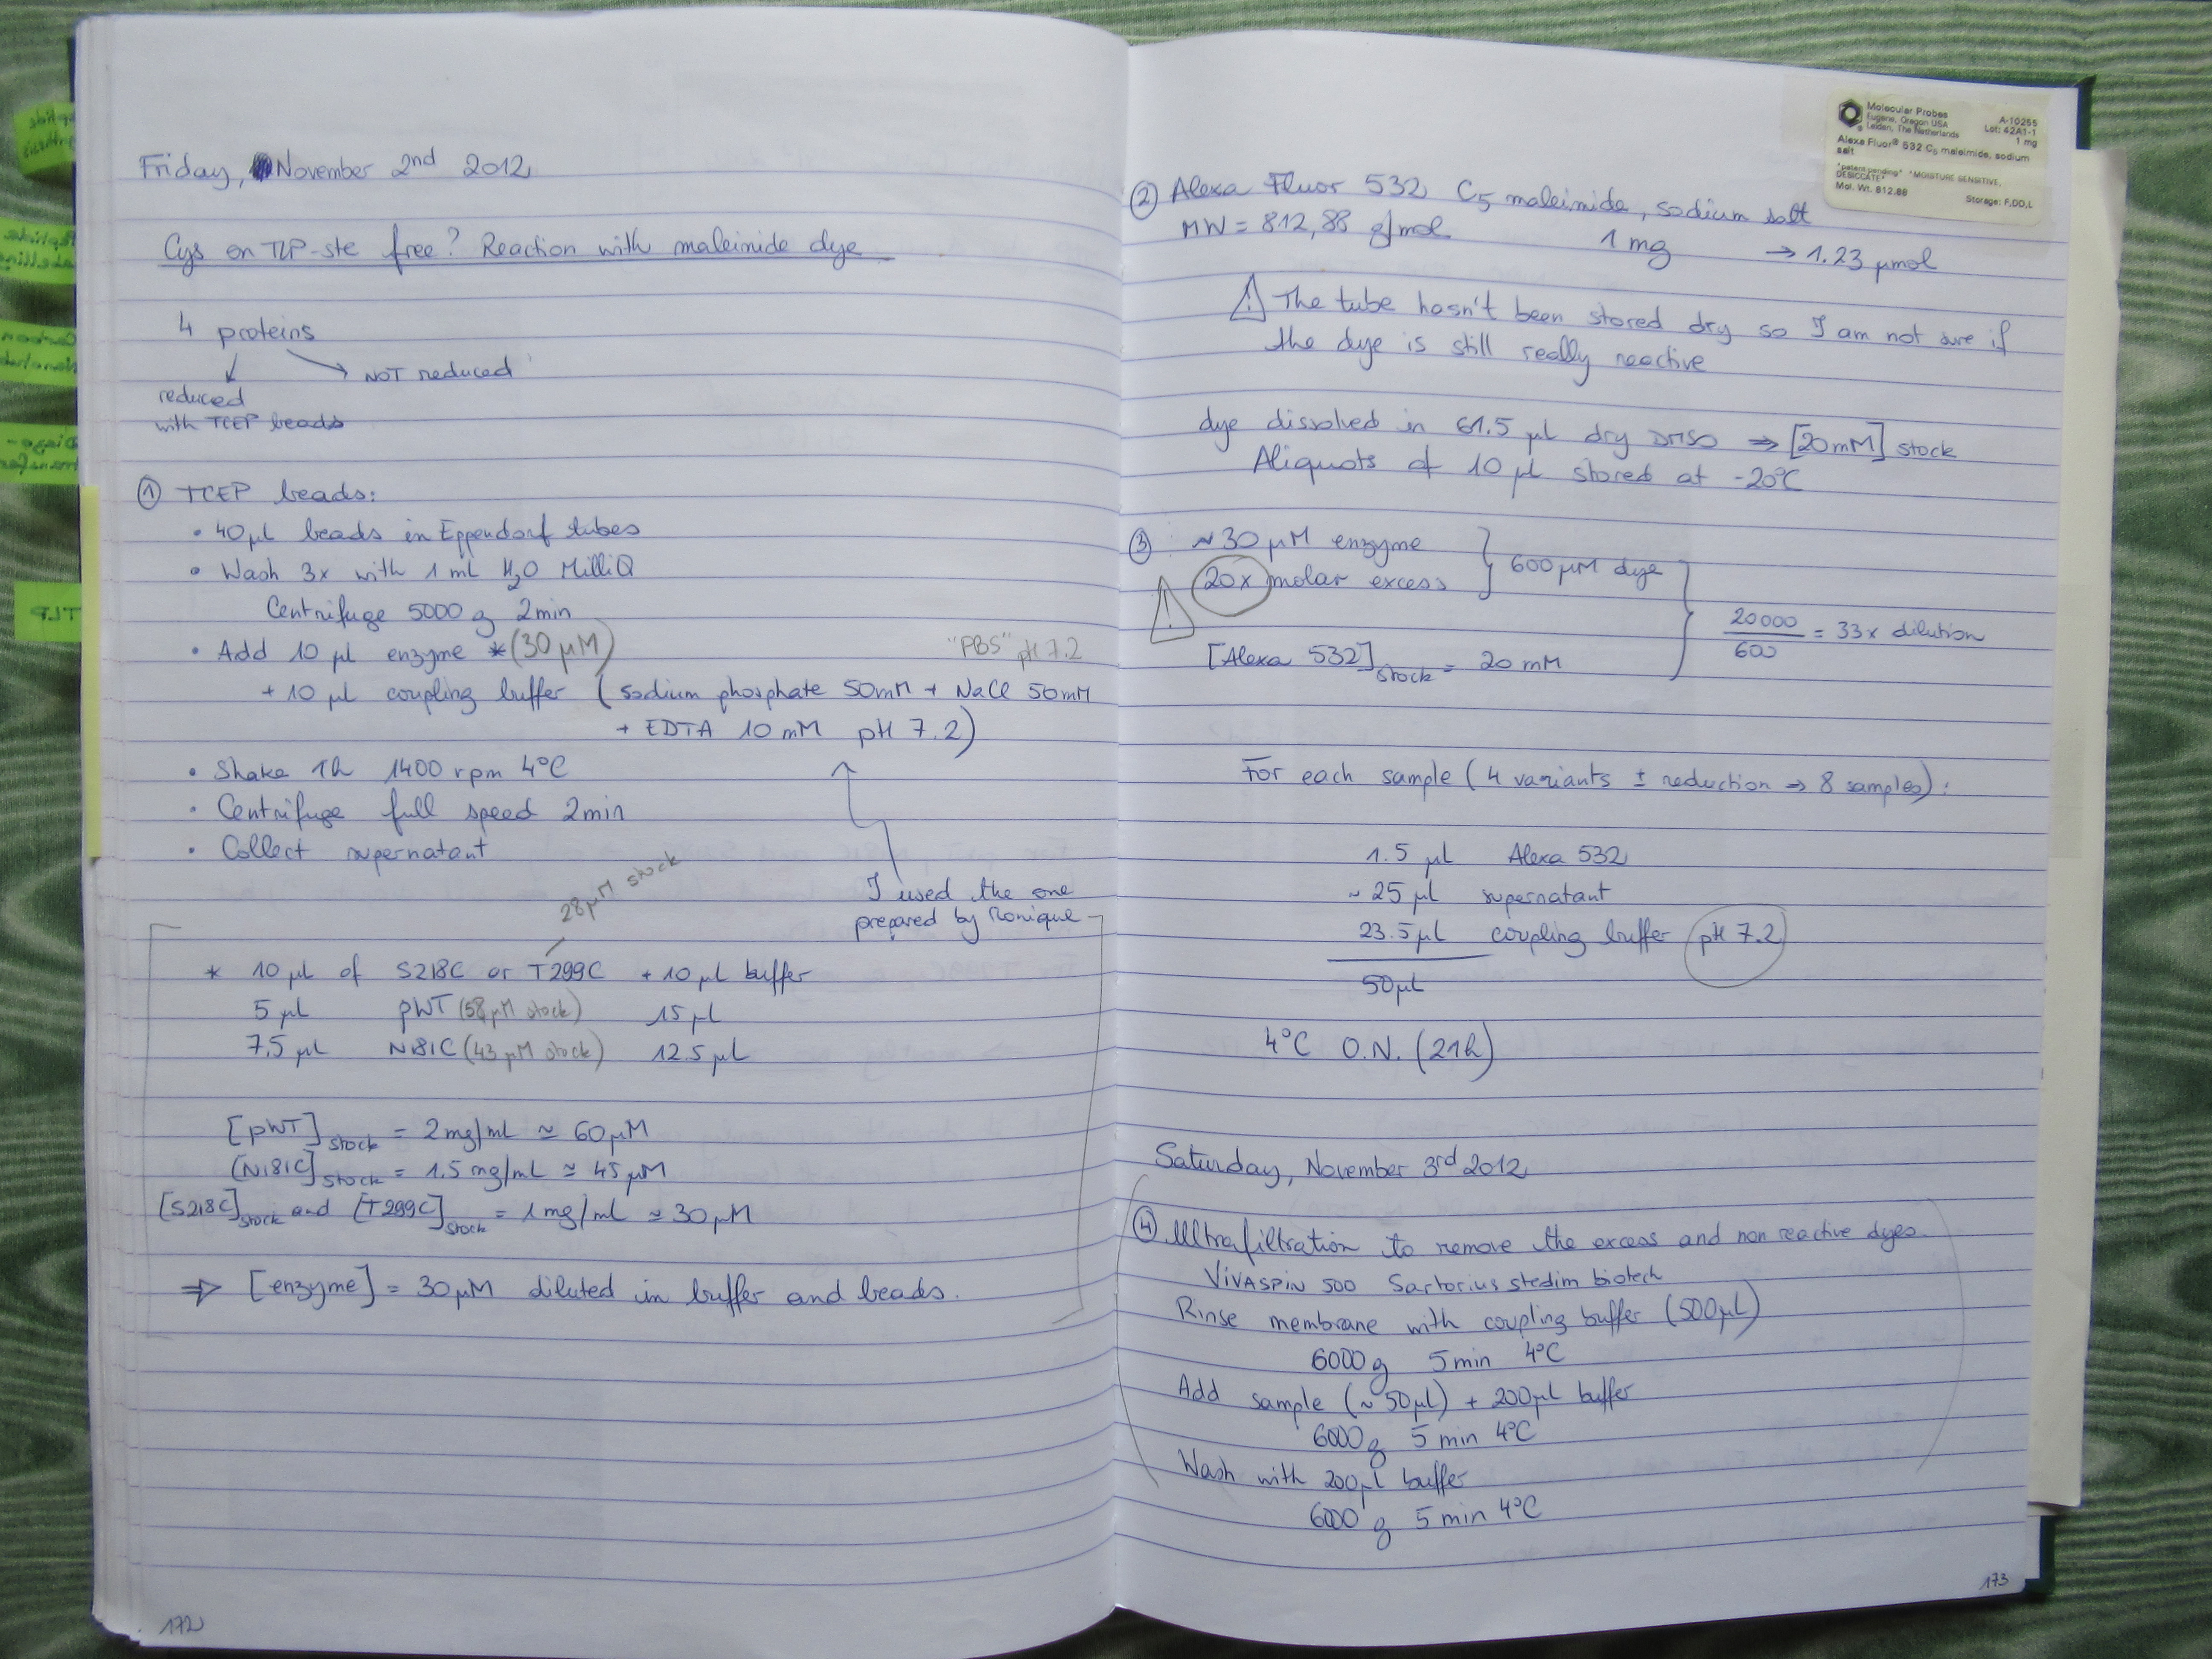 Friday, November 2nd 2012
Cys on TLP-ste free? Reaction with maleimide dye
4 proteins
NOT reduced
reduced
with TCEP beads
① TCEP beads:
• 40 µl beads in Eppendorf tubes
• Wash 3x with 1 mL H2O MilliQ
Centrifuge 5000 g 2min
• Add 10 µl enzyme * (30 µM)
"PBS" pH 7.2
+ 10 µl coupling buffer (sodium phosphate 50mM + NaCl 50mM
+ EDTA 10 mM pH 7.2)
• Shake 1h 1400 rpm 4°C
• Centrifuge full speed 2min
• Collect supernatant
I used the one
prepared by Monique
28µM stock
* 10 µl of S218C or T299C + 10 µl buffer
5 µl pWT (58µM stock) 15 µl
7,5 µl N181C (43 µM stock) 12.5 µL
[pWT]stock = 2mg/mL ≃ 60µM
[N181C]stock = 1.5 mg/mL ≃ 45 µM
[S218C]stock and [T299C]stock = 1mg/mL ≃ 30µM
⇒ [enzyme] = 30µM diluted in buffer and beads.
172
Molecular Probes
Eugene, Oregon USA
Leiden, The Netherlands
A-10255
Lot: 42A1-1
1 mg
Alexa Fluor® 532 C5 maleimide, sodium
salt
*patent pending* *MOISTURE SENSITIVE,
DESICCATE*
Mol. Wt. 812.88
Storage: F,DD,L
② Alexa Fluor 532 C5 maleimide, sodium salt
MW = 812,88 g/mol 1 mg → 1.23 µmol
⚠ The tube hasn't been stored dry so I am not sure if
the dye is still really reactive
dye dissolved in 61.5 µl dry DMSO ⇒ [20mM] stock
Aliquots of 10 µl stored at -20°C
③ ~30 µM enzyme
20x molar excess
600µM dye
20000/600 = 33x dilution
[Alexa 532]stock = 20 mM
For each sample (4 variants ± reduction ⇒ 8 samples):
1.5 µL Alexa 532
~ 25 µl supernatant
23.5µl coupling buffer pH 7.2
50µL
4°C O.N. (21h)
Saturday, November 3rd 2012
④ Ultrafiltration to remove the excess and non reactive dyes.
VIVASPIN 500 Sartorius stedim biotech
Rinse membrane with coupling buffer (500µL)
6000g 5min 4°C
Add sample (~50µl) + 200µl buffer
6000g 5 min 4°C
Wash with 200µl buffer
6000 g 5 min 4°C
173
TLP